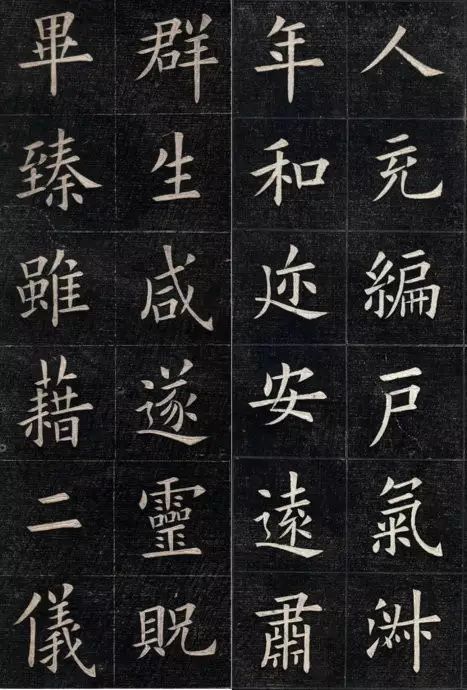 人充編户氣淑
年和迩安遠肅
群生咸遂靈貺
畢臻雖藉二儀